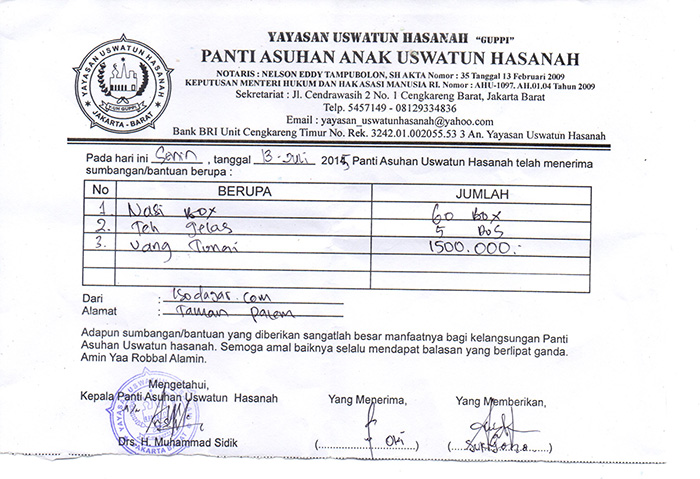 YAYASAN USWATUN HASANAH "GUPPI"
PANTI ASUHAN ANAK USWATUN HASANAH
NOTARIS : NELSON EDDY TAMPUBOLON, SH AKTA Nomor : 35 Tanggal 13 Februari 2009
KEPUTUSAN MENTERI HUKUM DAN HAK ASASI MANUSIA RI. Nomor : AHU-1097. AH.01.04 Tahun 2009
Sekretariat : Jl. Cendrawasih 2 No. 1 Cengkareng Barat, Jakarta Barat
Telp. 5457149 - 08129334836
Email : yayasan_uswatunhasanah@yahoo.com
Bank BRI Unit Cengkareng Timur No. Rek. 3242.01.002055.53 3 An. Yayasan Uswatun Hasanah
YAYASAN USWATUN HASANAH
JAKARTA - BARAT
Pada hari ini Senin, tanggal 13 - Juli 2015, Panti Asuhan Uswatun Hasanah telah menerima
sumbangan/bantuan berupa :
No BERUPA JUMLAH
1. Nasi Box 60 Box
2. Teh gelas 5 Dus
3. Uang Tunai 1500.000.-
Dari :
Alamat : Taman Palem
Adapun sumbangan/bantuan yang diberikan sangatlah besar manfaatnya bagi kelangsungan Panti
Asuhan Uswatun hasanah. Semoga amal baiknya selalu mendapat balasan yang berlipat ganda.
Amin Yaa Robbal Alamin.
Mengetahui,
Kepala Panti Asuhan Uswatun Hasanah Yang Menerima, Yang Memberikan,
Drs. H. Muhammad Sidik (.....Oki.....) (....................)